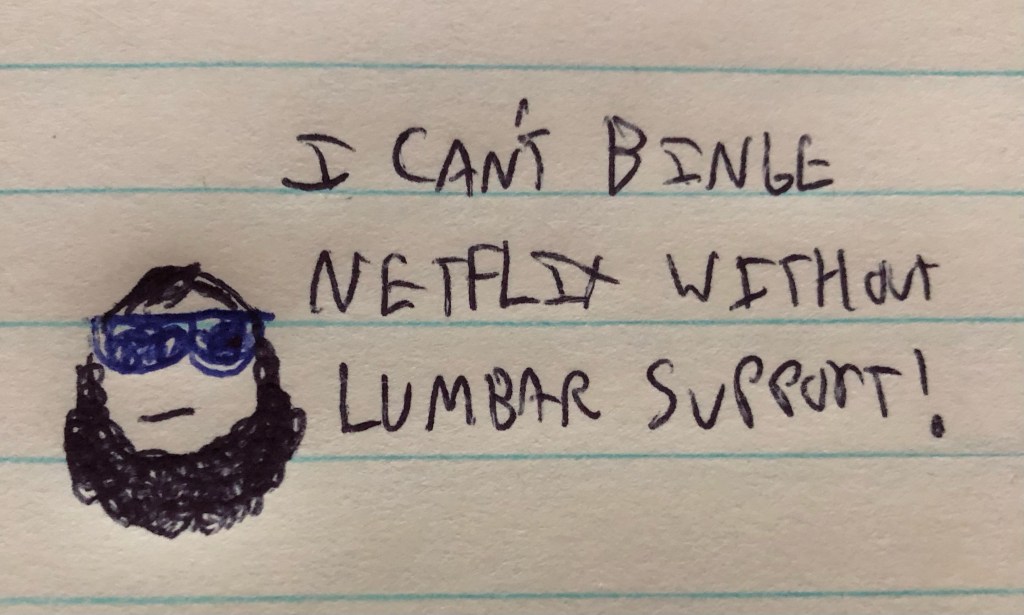 I CAN'T BINGE
NETFLIX WITHOUT
LUMBAR SUPPORT!